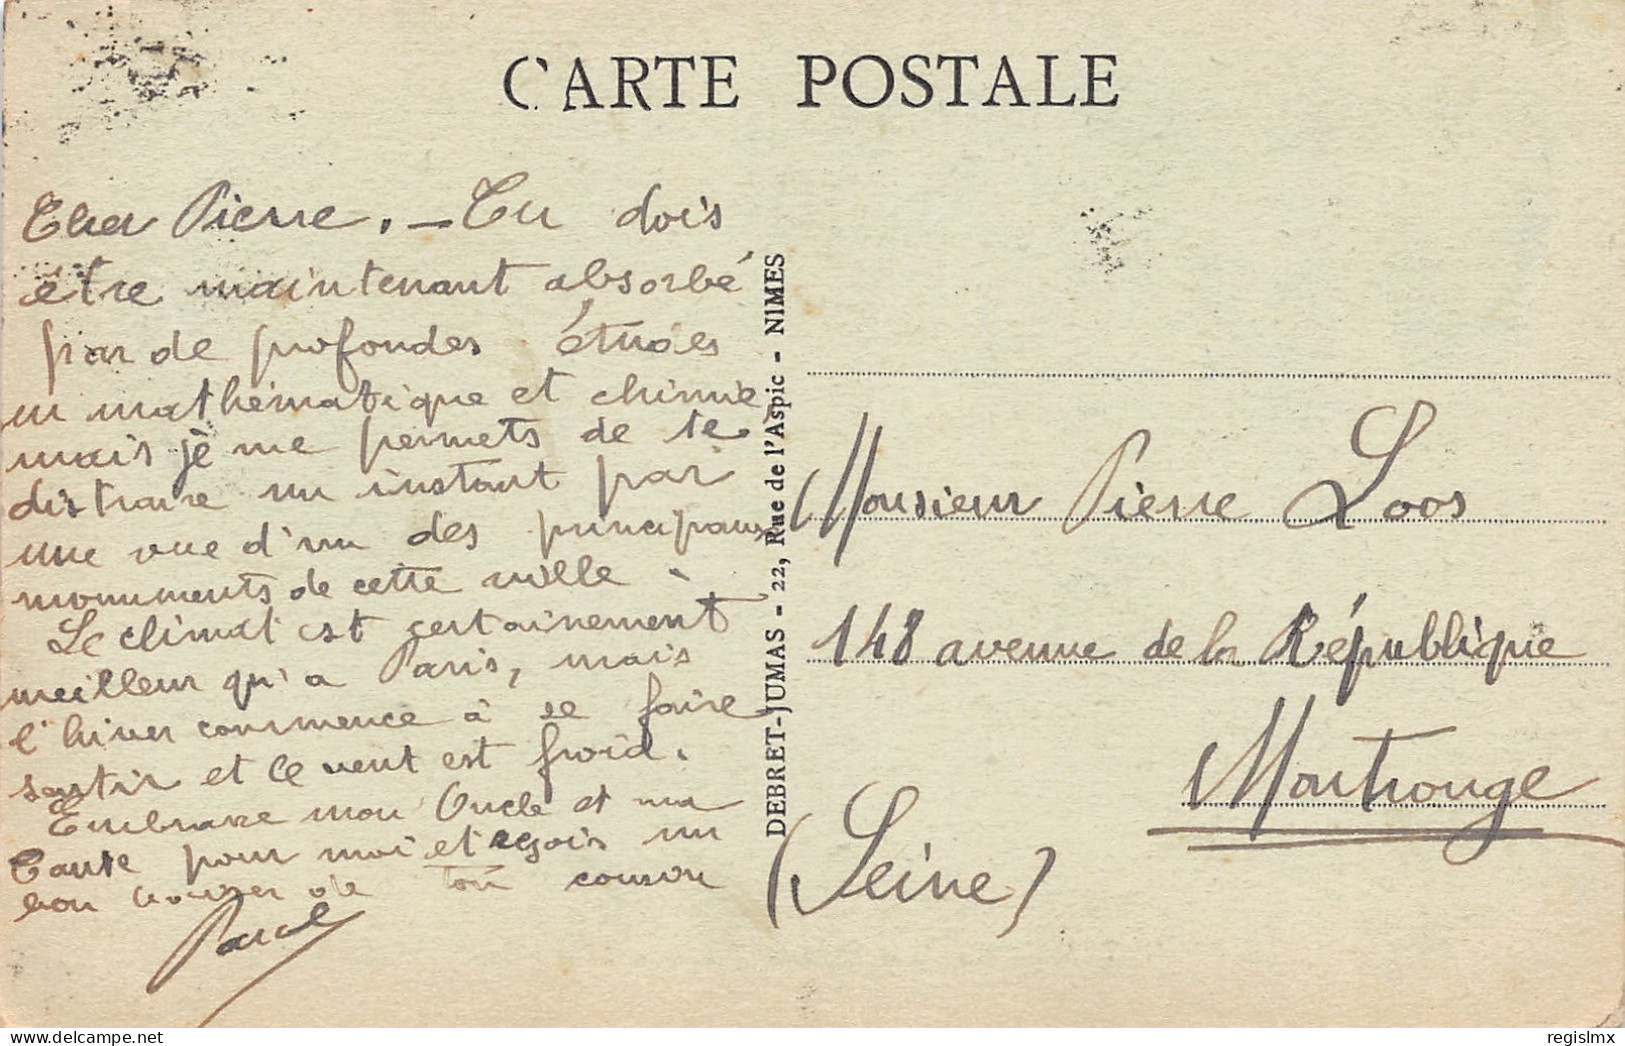 CARTE POSTALE
Cher Pierre. — Tu dois
être maintenant absorbé
par de profondes études
en mathématique et chimie
mais je me permets de te
distraire un instant par
une vue d'un des principaux
monuments de cette ville.
Le climat est certainement
meilleur qu'a Paris, mais
l'hiver commence à se faire
sentir et le vent est froid.
Embrasse mon Oncle et ma
Tante pour moi et reçois un
bon baiser de ton cousin
DEBRET-JUMAS - 22, Rue de l'Aspic - NIMES
Monsieur Pierre Loos
148 avenue de la République
Montrouge
(Seine)
regislmx